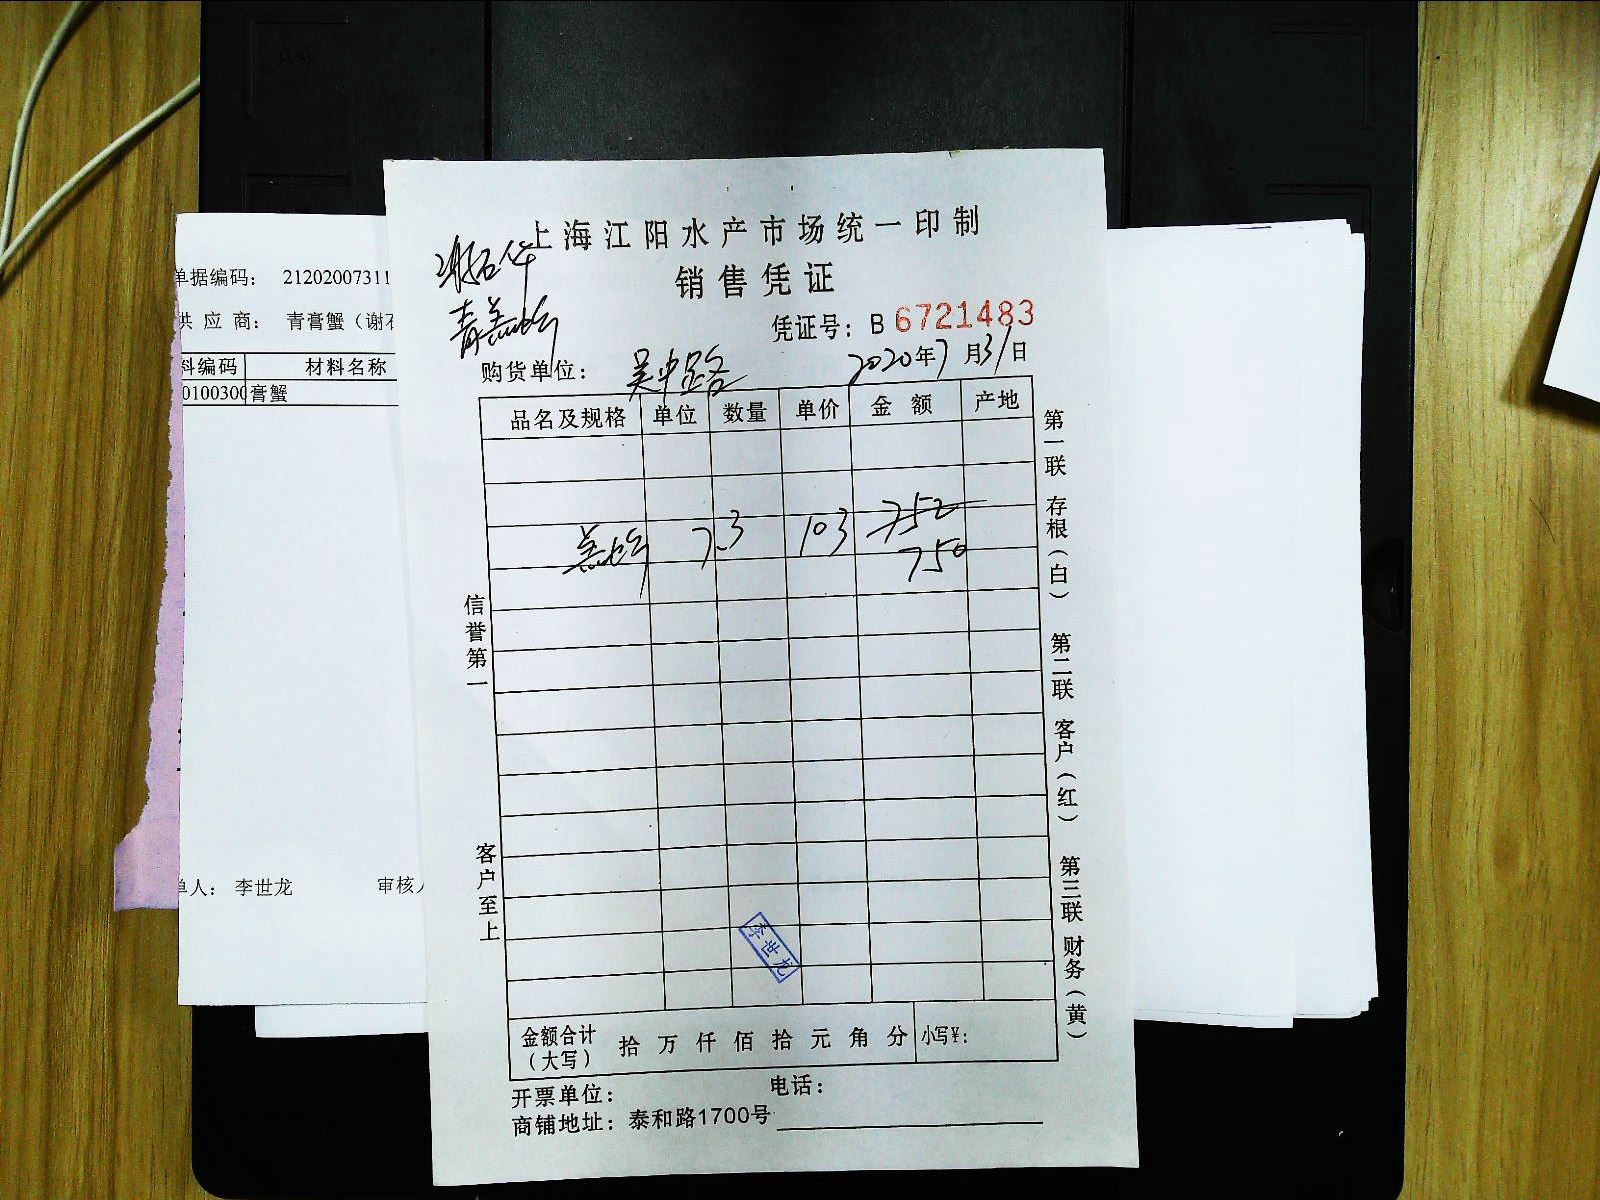 上海江阳水产市场统一印制
销售凭证
谢石华
青膏蟹
凭证号：B 6721483
购货单位：吴中路 2020年7月31日
品名及规格 单位 数量 单价 金额 产地
752
膏蟹 7.3 103 750
信誉第一
客户至上
第一联 存根（白） 第二联 客户（红） 第三联 财务（黄）
李世龙
金额合计（大写） 拾 万 仟 佰 拾 元 角 分 小写¥：
开票单位： 电话：
商铺地址：泰和路1700号
单据编码： 21202007311
供应商： 青膏蟹（谢石
料编码 材料名称
0100300 膏蟹
单人： 李世龙 审核人